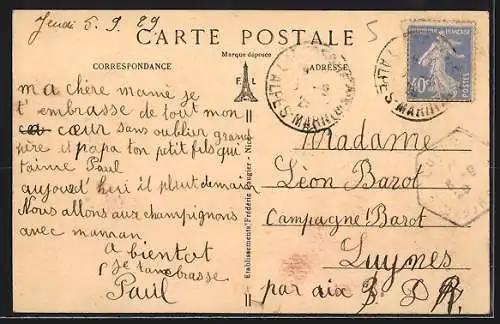 Jeudi 5.9.29
5
CARTE POSTALE
Marque déposée
CORRESPONDANCE
ADRESSE
E L
RÉPUBLIQUE FRANÇAISE
40c
POSTES
ALPES-MARITIMES
ma chère mamé je
t'embrasse de tout mon
cœur sans oublier grand
père et papa ton petit fils qui
t'aime Paul
aujourd hui il pleut demain
Nous allons aux champignons
avec maman
a bientot
je t'embrasse
Paul
Etablissements Frédéric Laugier - Nice
Madame
Léon Barot
Campagne Barot
Luynes
par aix B. D. R.